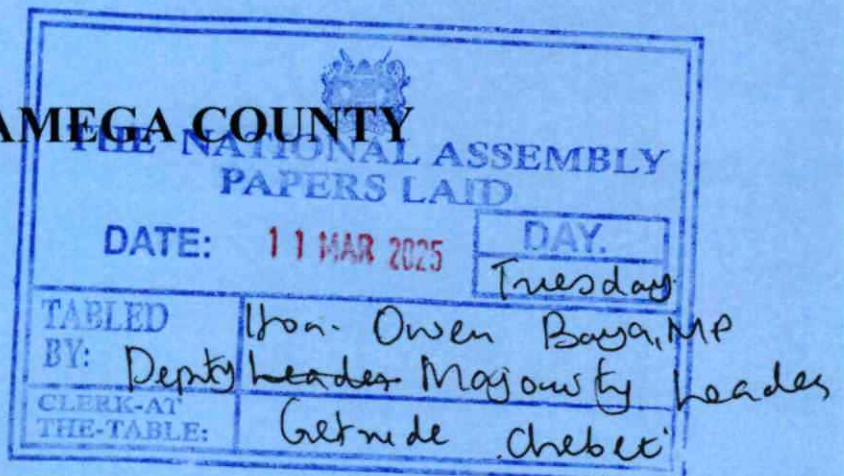 AMEGA COUNTY
THE NATIONAL ASSEMBLY
PAPERS LAID
DATE: 11 MAR 2025 DAY.
Tuesday
TABLED BY: Hon. Owen Baya, MP
Deputy Leader Majority Leader
CLERK-AT THE-TABLE: Getrude Chebet